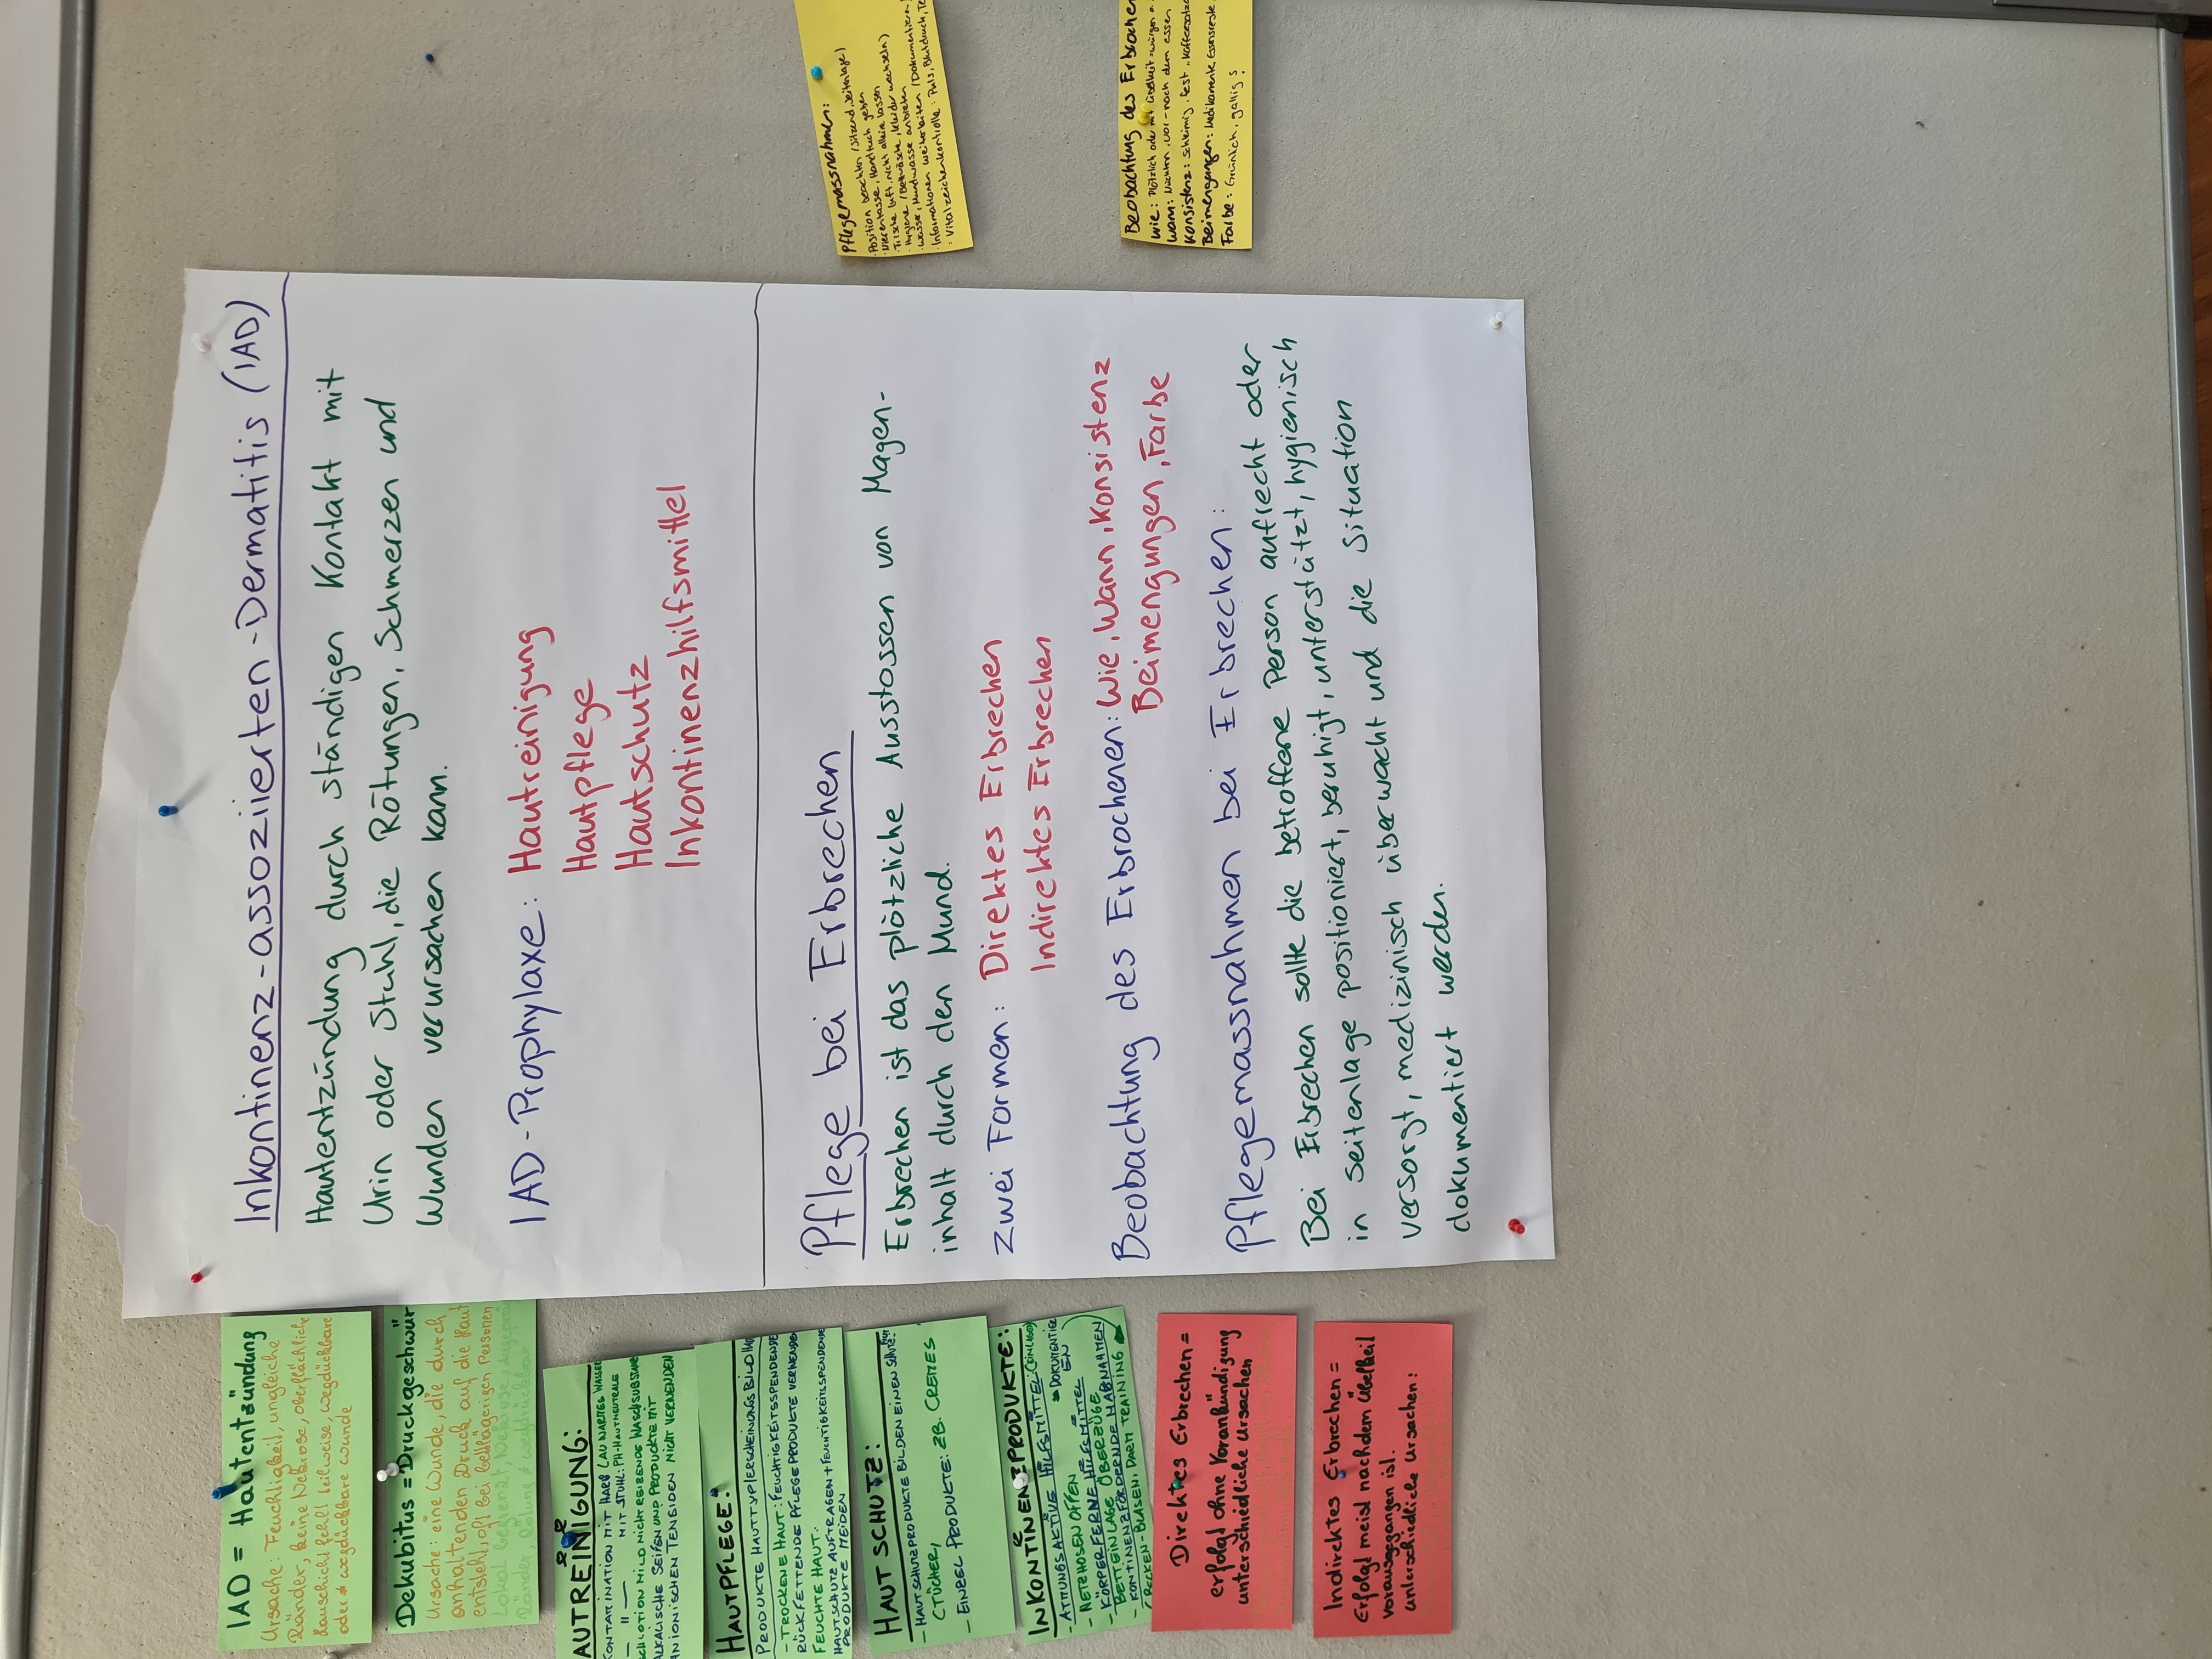 Inkontinenz-assoziierten-Dermatitis (IAD)
Hautentzündung durch ständigen Kontakt mit
Urin oder Stuhl, die Rötungen, Schmerzen und
Wunden verursachen kann.
IAD-Prophylaxe: Hautreinigung
Hautpflege
Hautschutz
Inkontinenzhilfsmittel
Pflege bei Erbrechen
Erbrechen ist das plötzliche Ausstossen von Magen-
inhalt durch den Mund.
Zwei Formen: Direktes Erbrechen
Indirektes Erbrechen
Beobachtung des Erbrochenen: Wie, Wann, Konsistenz
Beimengungen, Farbe
Pflegemassnahmen bei Erbrechen:
Bei Erbrechen sollte die betroffene Person aufrecht oder
in seitenlage positioniert, beruhigt, unterstützt, hygienisch
versorgt, medizinisch überwacht und die Situation
dokumentiert werden.
IAD = Hautentzündung
Ursache: Feuchtigkeit, ungleiche
Ränder, keine Nekrose, oberflächliche
Hauschicht fehlt teilweise, wegdrückbare
oder ≠ wegdückbare wunde
Dekubitus = Druckgeschwür
Ursache: eine Wunde, die durch
anhaltenden Druck auf die Haut
entsteht, oft bei bettlägerigen Personen
Lokal begrenzt, Nekrose,
Ränder,
AUTREINIGUNG:
KONTAMINATION MIT HARN LAUWARMES WASSER
— " — MIT STUHL: PH-HAUTNEUTRALE
MILD NICHT REIZENDE WASCHSUBSTANZ
ALKALISCHE SEIFEN UND PRODUKTE MIT
ANIONISCHEN TENSIDEN NICHT VERWENDEN
HAUTPFLEGE:
PRODUKTE HAUTTYP/ERSCHEINUNGSBILD
- TROCKENE HAUT: FEUCHTIGKEITSSPENDENDE
RÜCKFETTENDE PFLEGEPRODUKTE VERWENDEN
FEUCHTE HAUT:
HAUTSCHUTZ AUFTRAGEN + FEUCHTIGKEITSSPENDENDE
PRODUKTE MEIDEN
HAUT SCHUTZ:
- HAUTSCHUTZPRODUKTE BILDEN EINEN
CTÜCHER,
- EINZEL PRODUKTE: ZB. CREMES
INKONTINENZPRODUKTE:
- ATMUNGSAKTIVE HILFSMITTEL (EINLAGEN)
- NETZHOSEN OFFEN → DOKUMENTIER
EN
- KÖRPERFERNE HILFSMITTEL
- BETTEINLAGE ÜBERZÜGE
- KONTINENZFÖRDERNDE MAßNAHMEN
(BECKEN-BLASEN, DARM TRAINING
Direktes Erbrechen =
erfolgt ohne Vorankündigung
unterschiedliche Ursachen
Indirektes Erbrechen =
Erfolgt meist nachdem Übelkeit
vorausgegangen ist.
Unterschiedliche Ursachen:
Pflegemassnahmen:
Position beachten (Sitzend, Seitenlage)
Nierentasse, Handtuch geben
Frische luft, nicht alleine lassen
Hygiene (Bettwäsche, kleider wechseln)
wasser, Mundwasser anbieten
Informationen weiterleiten (Dokumentieren)
Vitalzeichenkontrolle: Puls, Blutdruck,
Beobachtung des Erbrochen
Wie: Plötzlich oder mit übelkeit würgen
Wann: Nüchtern, vor-nach dem essen
Konsistenz: Schleimig, fest, Kaffeesatz
Beimengungen: Medikamente, Essensreste
Farbe: Grünlich, gallig